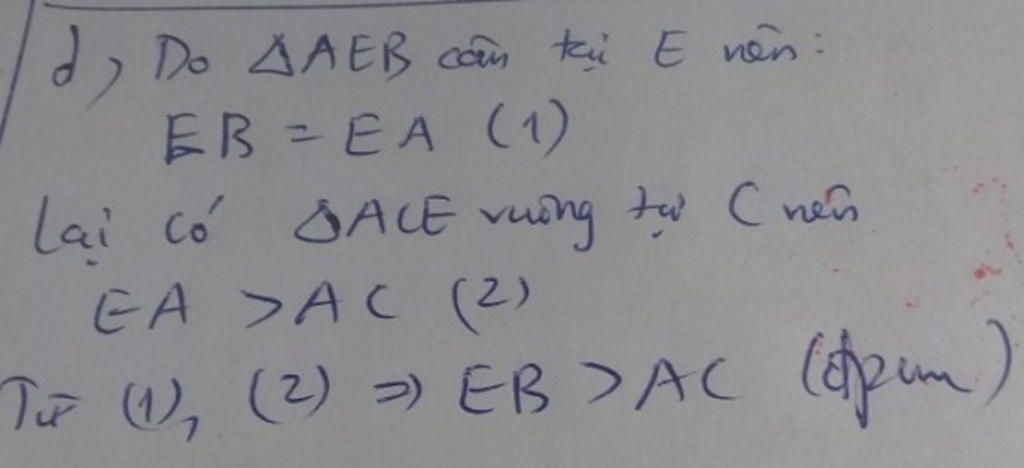 d, Do ΔAEB cân tại E nên:
EB = EA (1)
Lại có ΔACE vuông tại C nên
EA > AC (2)
Từ (1), (2) => EB > AC (đpcm)